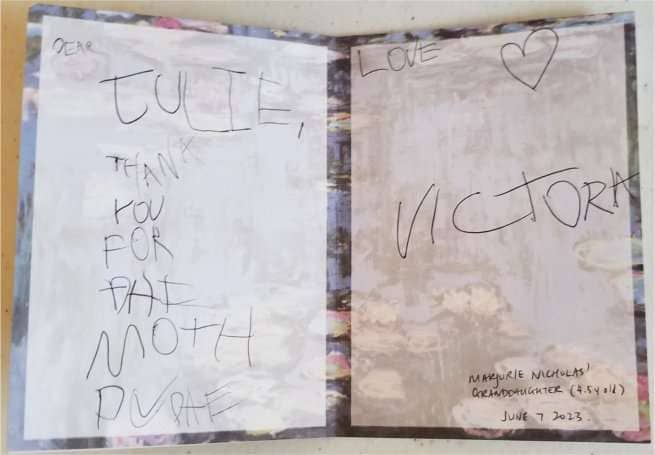 DEAR
JULIE,
THANK
YOU
FOR
THE
MOTH
PUPAE
LOVE
VICTORA
MARJORIE NICHOLAS'
GRANDDAUGHTER (4.5 y old)
JUNE 7 2023.